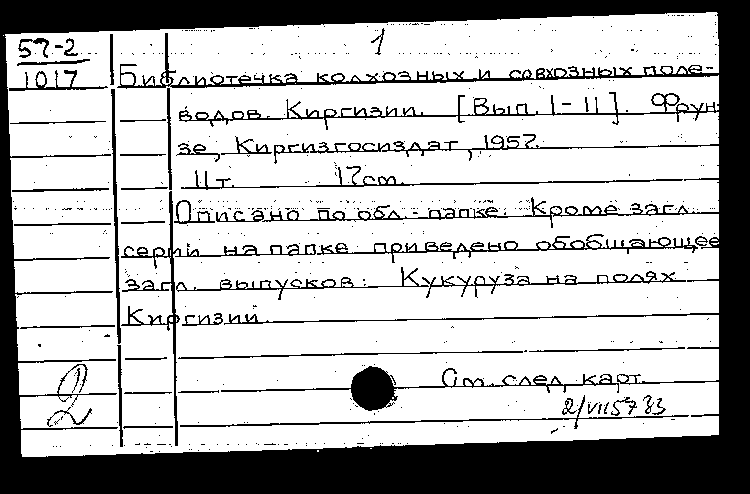 57-2
1
1017
Библиотечка колхозных и совхозных поле-
водов Киргизии. [Вып. 1-11]. Фрун-
зе, Киргизгосиздат, 1957.
11 т. 17 cm.
Описано по обл.-папке. Кроме загл.
серии на папке приведено обобщающее
загл. выпусков: Кукуруза на полях
Киргизии.
См. след. карт.
2
2/VII 57 33